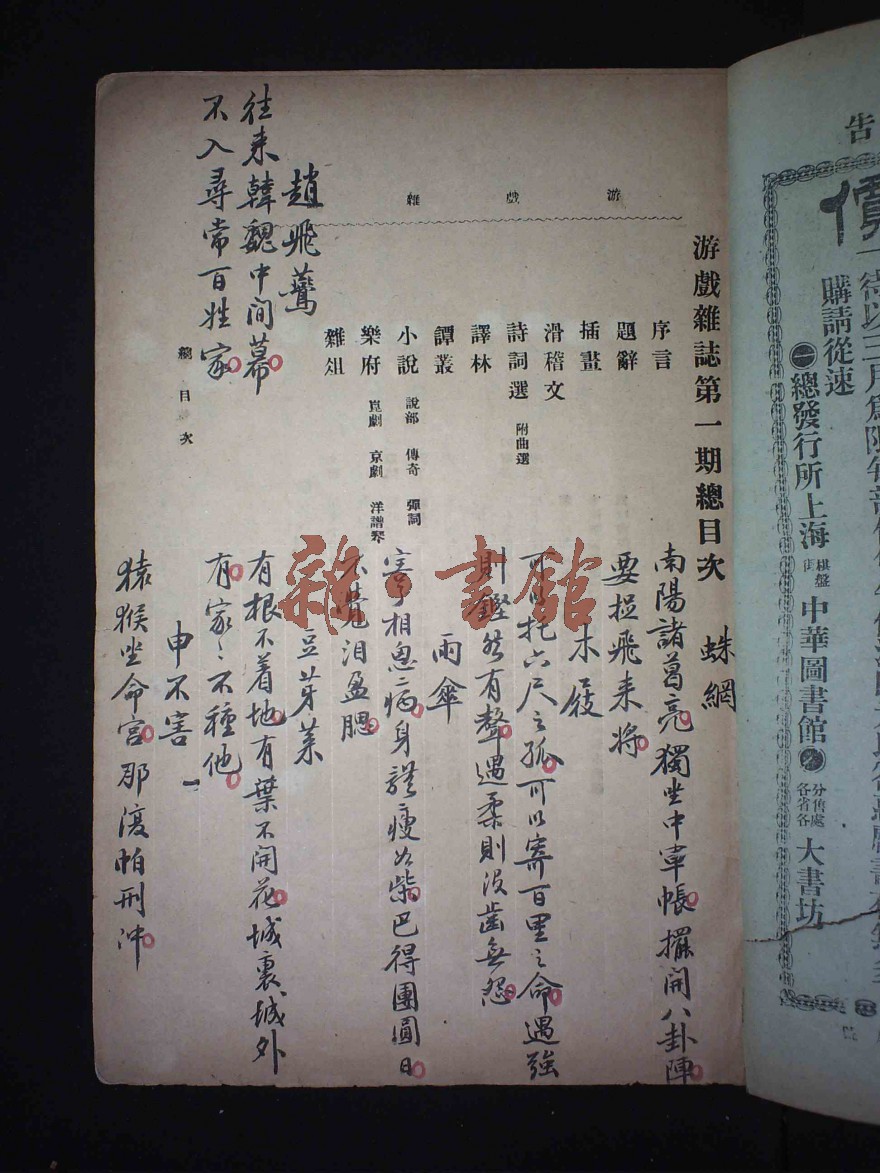 告
價
一律以三月為限每部
購請從速
總發行所上海
棋盤街
中華圖書館
分售處
各省各
大書坊
游戲雜
游戲雜誌第一期總目次
序言
題辭
插畫
滑稽文
詩詞選 附曲選
譯林
譚叢
小說 說部 傳奇 彈詞
樂府 崑劇 京劇 洋譜琴
雜俎
總目次
蛛網
南陽諸葛亮獨坐中軍帳擺開八卦陣
要捉飛來將
木屐
可以托六尺之孤可以寄百里之命遇強
則鏗然有聲遇柔則沒齒無怨
雨傘
害了相思病身體瘦如柴巴得團圓日
不覺泪盈腮
豆芽菜
有根不着地有葉不開花城裏城外
有家々不種他
申不害
猿猴坐命宮那復怕刑沖
趙飛鷰
往來韓魏中間幕
不入尋常百姓家
雜·書館